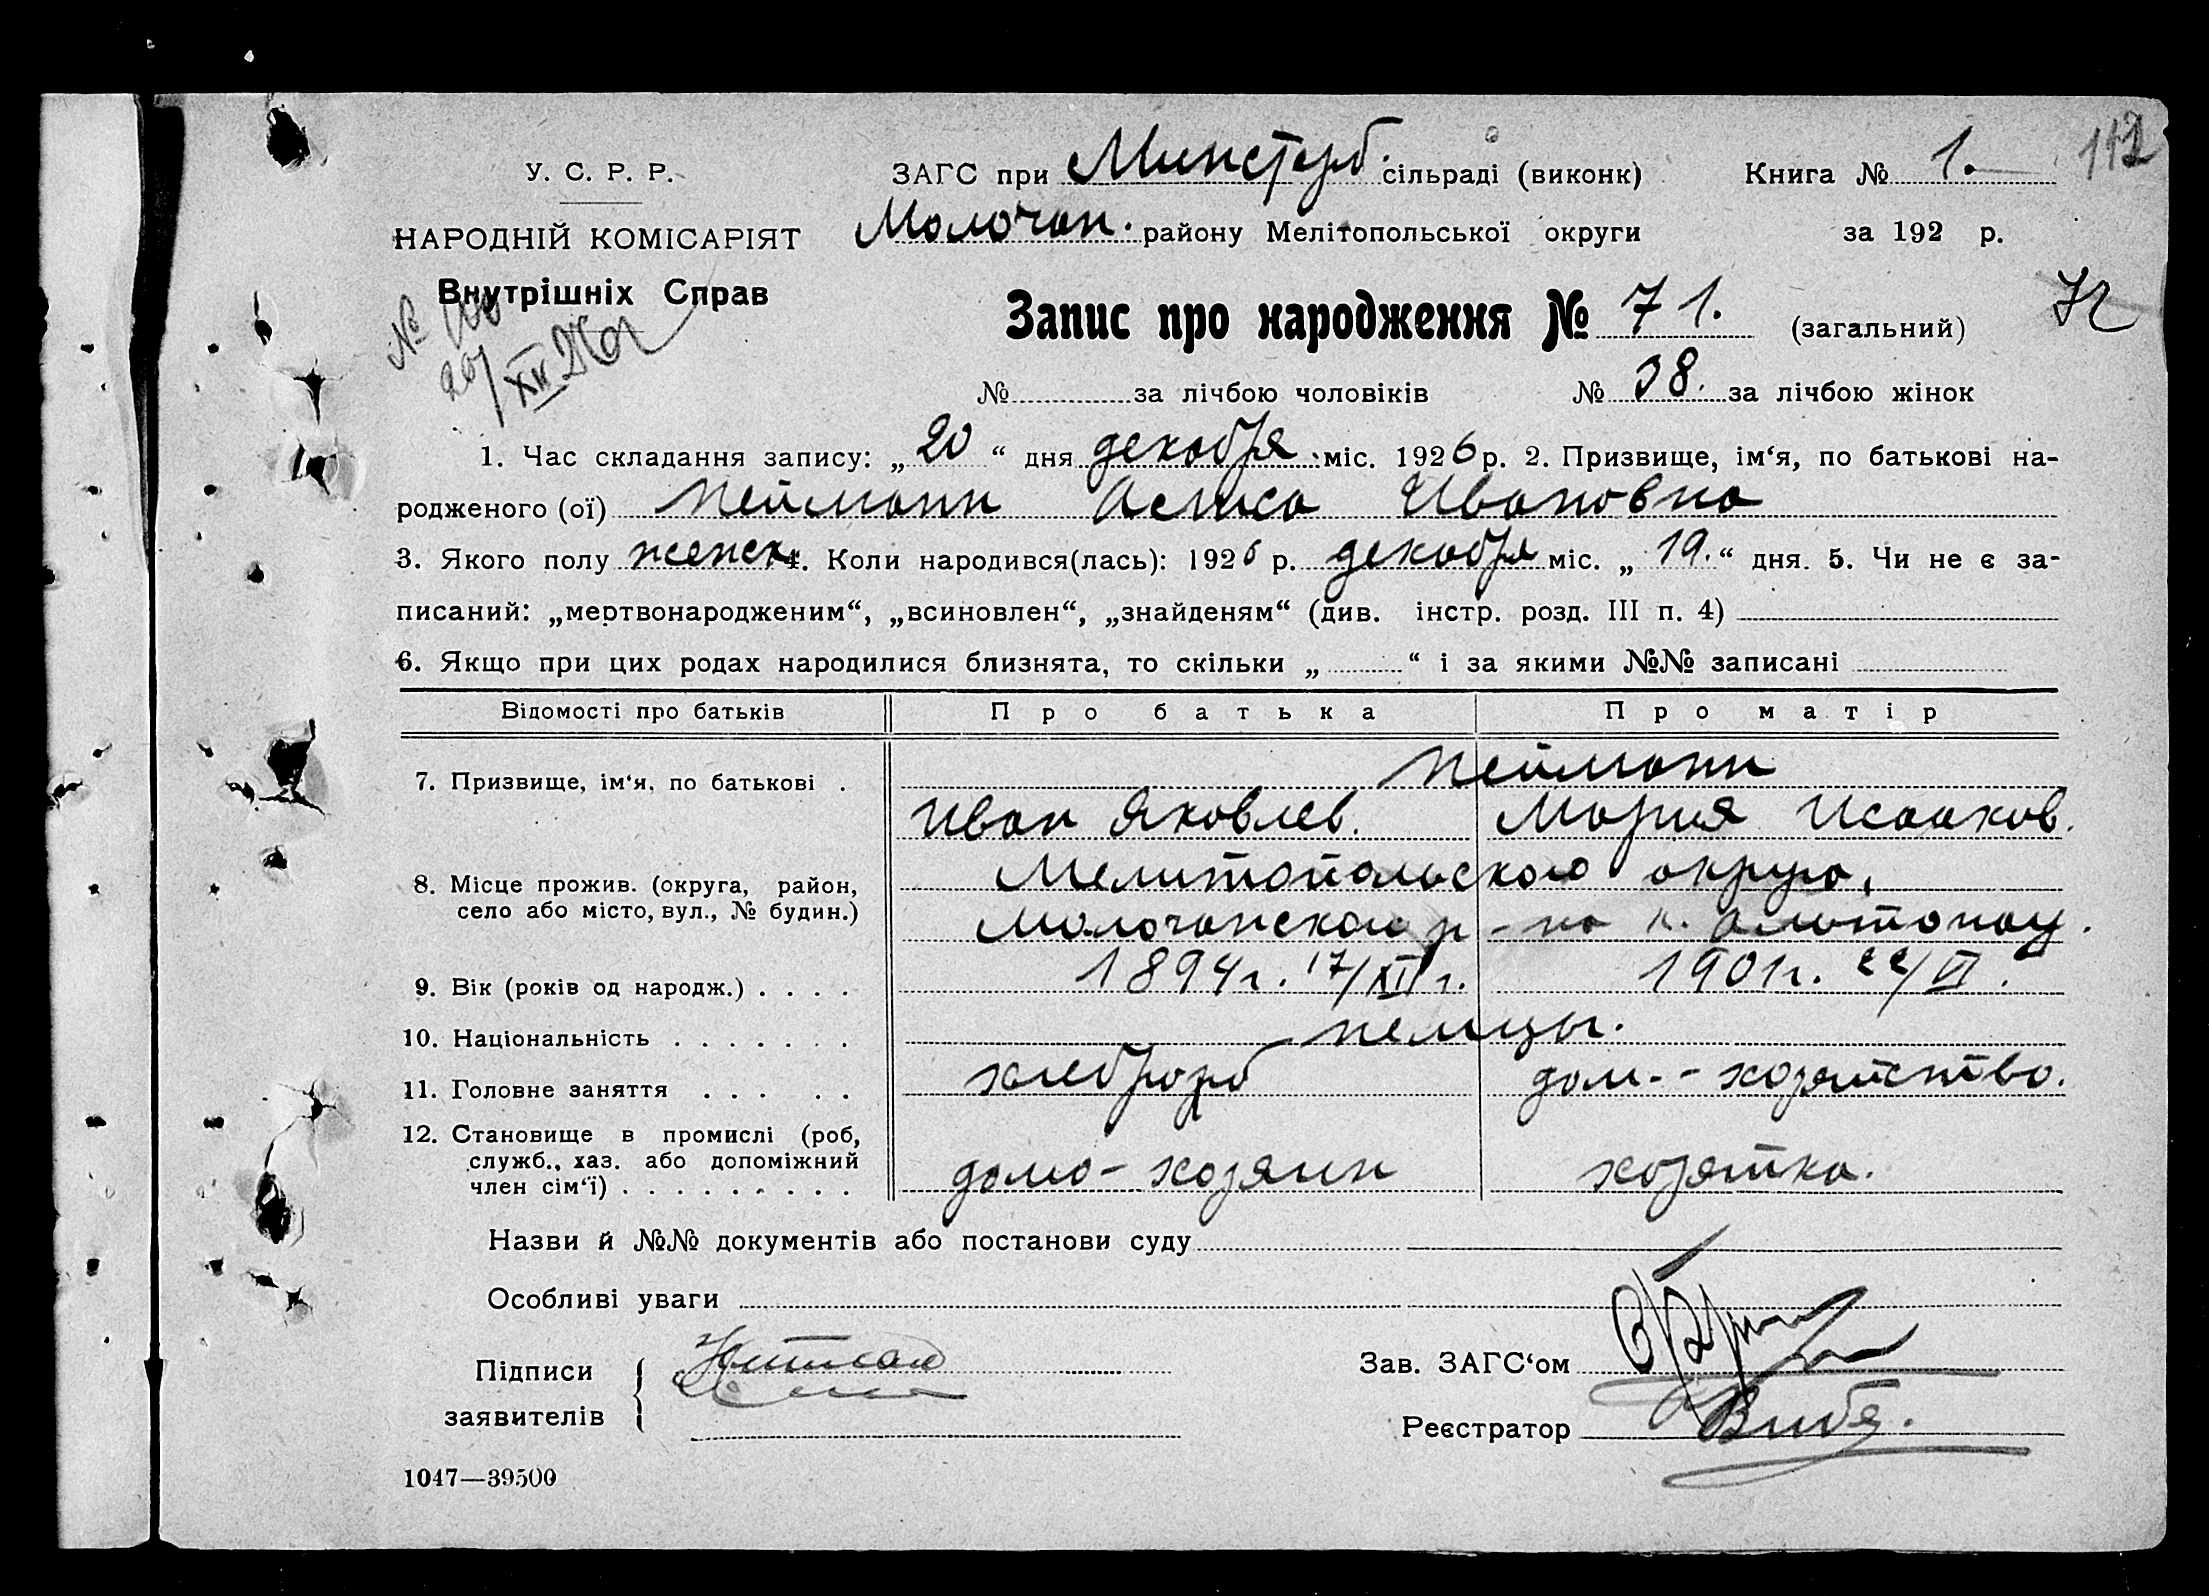 У. С. Р. Р.
НАРОДНІЙ КОМІСАРІЯТ
Внутрішніх Справ
ЗАГС при Минстерб. сільраді (виконк)
Книга № 1.
112
Молочан. району Мелітопольської округи
за 192 р.
Запис про народження № 71. (загальний)
№ за лічбою чоловіків № 38. за лічбою жінок
1. Час складання запису: „ 20 “ дня декабря міс. 1926 р. 2. Призвище, ім‘я, по батькові на-
родженого (ої) Нейманн Ивановна
3. Якого полу женск. 4. Коли народився(лась): 1926 р. декабря міс. „ 19. “ дня. 5. Чи не є за-
писаний: „мертвонародженим“, „всиновлен“, „знайденям“ (див. інстр. розд. III п. 4)
6. Якщо при цих родах народилися близнята, то скільки „ “ і за якими №№ записані
Відомості про батьків Про батька Про матір
7. Призвище, ім‘я, по батькові . Нейманн
Иван Яковлев. Мария Исааков.
8. Місце прожив. (округа, район, Мелитопольского округа,
село або місто, вул., № будин.) Молочанского р-на к. Альтонау.
9. Вік (років од народж.) . . . . 1894 г. 17/XII г. 1901 г. 22/VI.
10. Національність . . . . . . . немцы.
11. Головне заняття . . . . . хлебороб дом.-хозяйство.
12. Становище в промислі (роб,
служб., хаз. або допоміжний
член сім‘ї) . . . . . . . . . домо-хозяин хозяйка.
Назви й №№ документів або постанови суду
Особливі уваги
Підписи
заявителів
Зав. ЗАГС‘ом
Реєстратор Вибе.
1047—39500